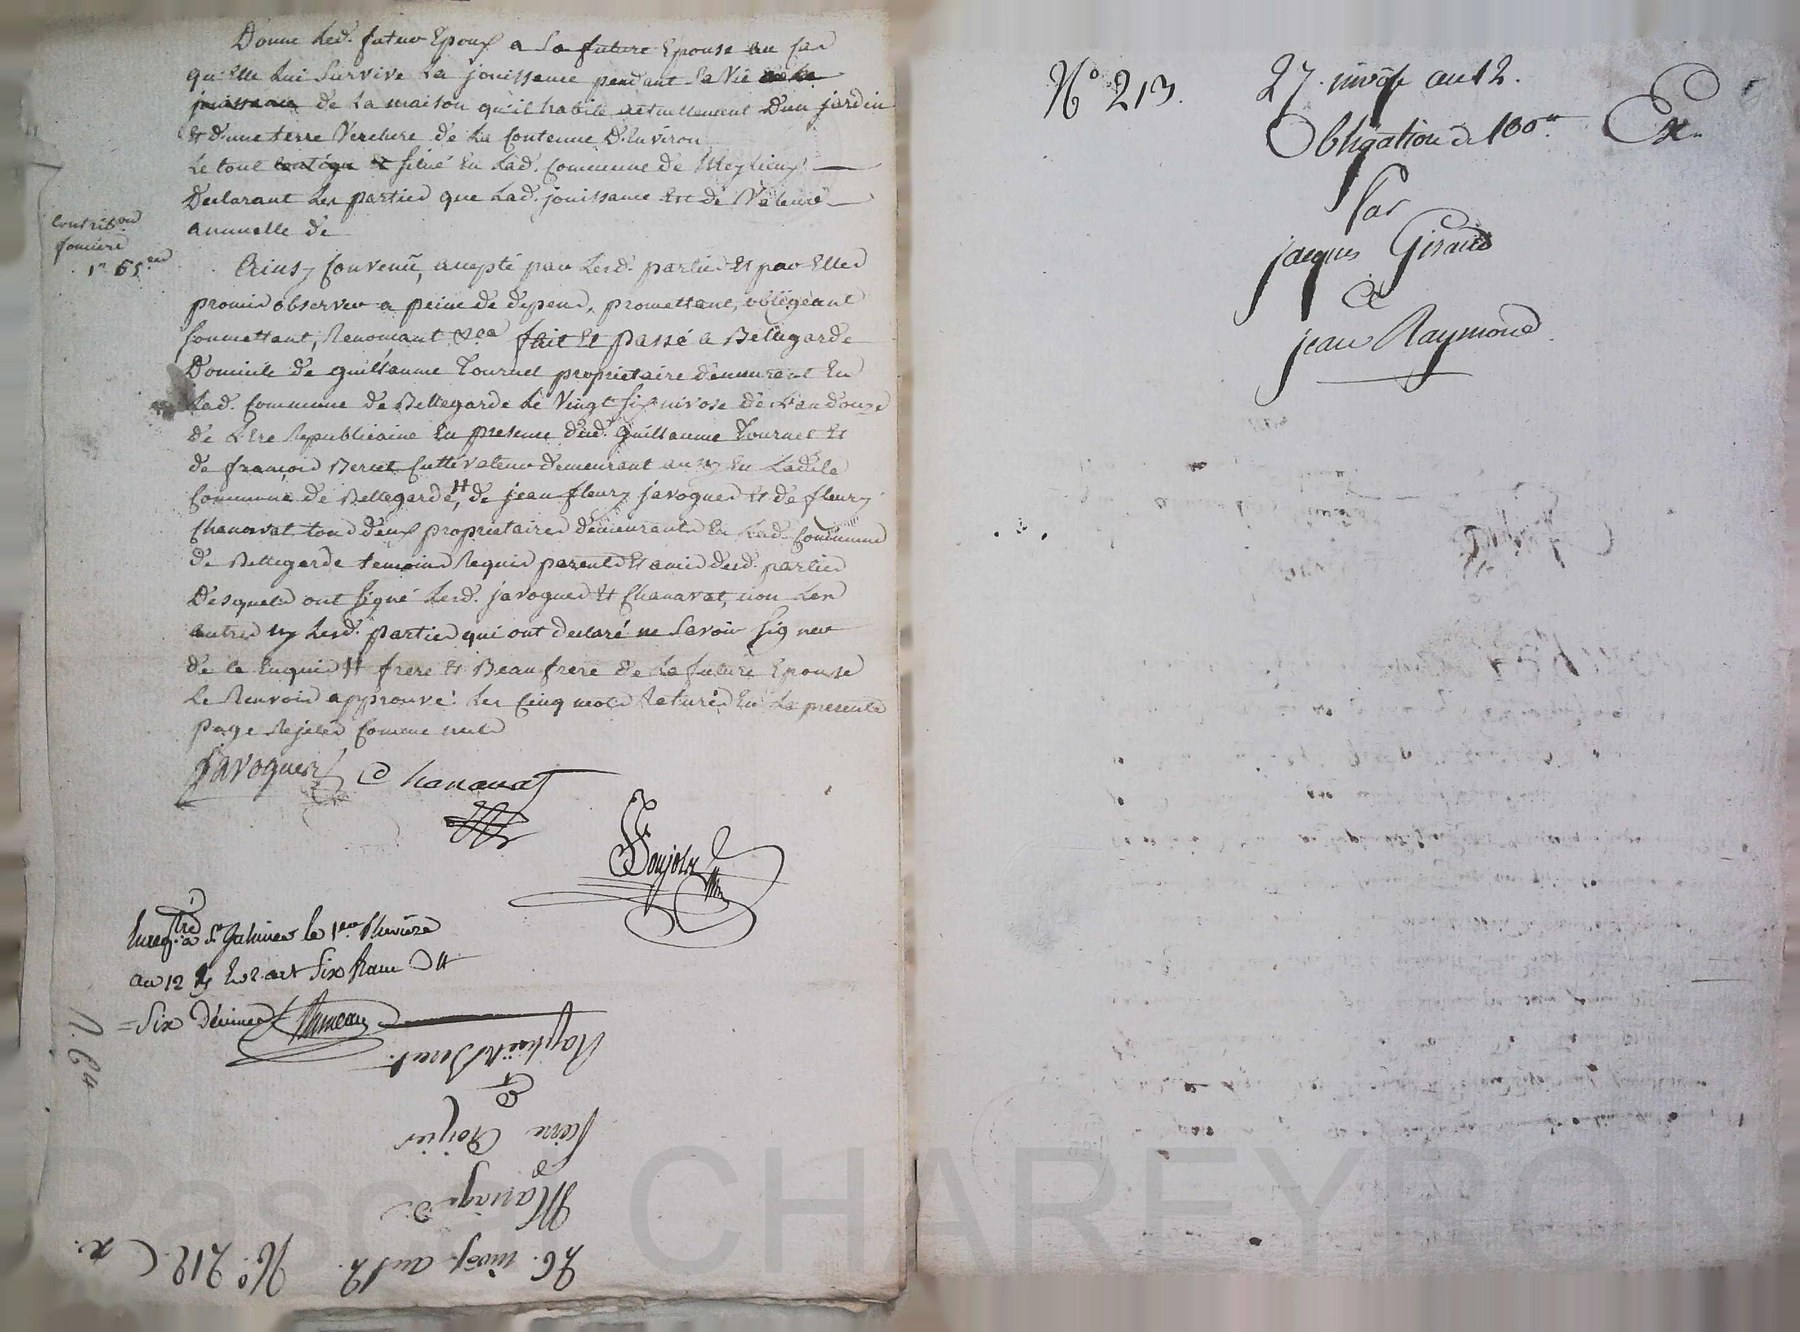 Donne led. futur Epoux a la future Epouse au cas
qu'Elle lui survive la jouissance pendant sa vie
jouissance de la maison qu'il habite actuellement D'un jardin
Et d'une terre Verchere de la Contenue D'Environ
le tout situé En lad. Commune de Meylieux
Declarant les parties que lad. jouissance Est de Valeur
annuelle de
Contrib.on
fonciere
1.r 65.
Ainsy Convenu, accepté par lesd. parties Et par Elles
promis observer a peine de depens, promettant, obligeant
soumettant, Renonçant &ca fait Et passé a Bellegarde
Domicile de guillaume Tournel proprietaire demeurant En
lad. Commune de Bellegarde le Vingt six nivose de l'an douze
de l'Ere Republicaine En presence dud. guillaume Tournel Et
de françois Bernet Cultivateur demeurant aussy En ladite
Commune de Bellegarde, # de jean fleury javogues Et de fleury
Chanavat tous deux proprietaires demeurants En lad. Commune
de Bellegarde temoins Requis parents Et amis desd. parties
Desquels ont signé lesd. javogues Et Chanavat, non les
autres ny lesd. parties qui ont declaré ne savoir signer
de ce Enquis # frere Et Beaufrere de la future Epouse
le Renvois approuvé. les Cinq mots Raturés En la presente
page Rejetés Comme nuls
Javogues Chanavat
Poujols
Enreg.tré à St Galmier le 1.er Pluviôse
an 12
Six Décimes
n. 64
Bernet
&
pierre
Mariage
De
26. nivose. an 12. N.° 212. Ex.
N.° 213. 27. nivose an 12.
Obligation de 100.tt Ex.
Par
jacques Giraud
à
jean Raymond.
Pascal CHAREYRON